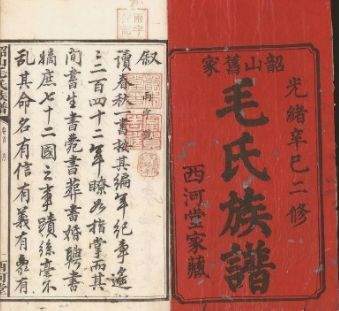 韶山舊家
光緒辛巳二修
毛氏族譜
西河堂家藏
叙
讀春秋一書按其編年紀事遠
三二百四十二年瞭如指掌而其
間書生書薨書葬書婚聘書
嫡庶七十二國之事蹟絲毫不
亂其命名有信有義有象有
韶山毛氏族譜
西河堂